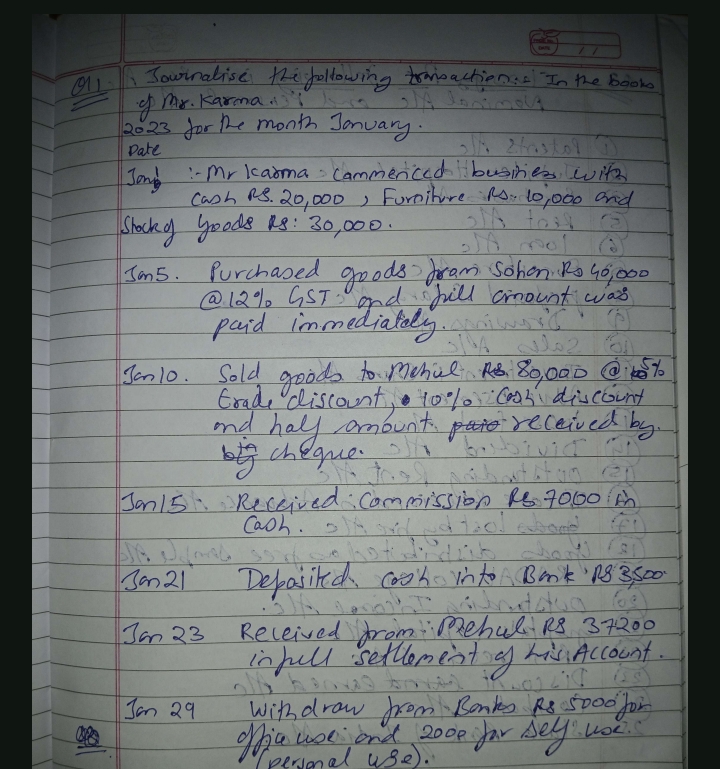 Q1. Journalise the following transaction: In the Books
of Mr. Karma.
2023 for the month January.
Date
Jan1 :- Mr Karma Commenced business with
cash RS. 20,000, Furniture RS. 10,000 and
Stock of Goods RS: 30,000.
Jan5. Purchased goods from Sohan Rs 40,000
@ 12% GST and full amount was
paid immediately.
Jan10. Sold goods to Mehul RS 80,000 @ 5%
trade discount, 10% Cash discount
and half amount received by
cheque.
Jan15 Received Commission RS 7000 in
Cash.
Jan21 Deposited cash into Bank RS 3,500.
Jan 23 Received from Mehul RS 37200
in full settlement of his Account.
Jan 29 Withdraw from Banks Rs 5000 for
office use and 2000 for Self use
(personal use).